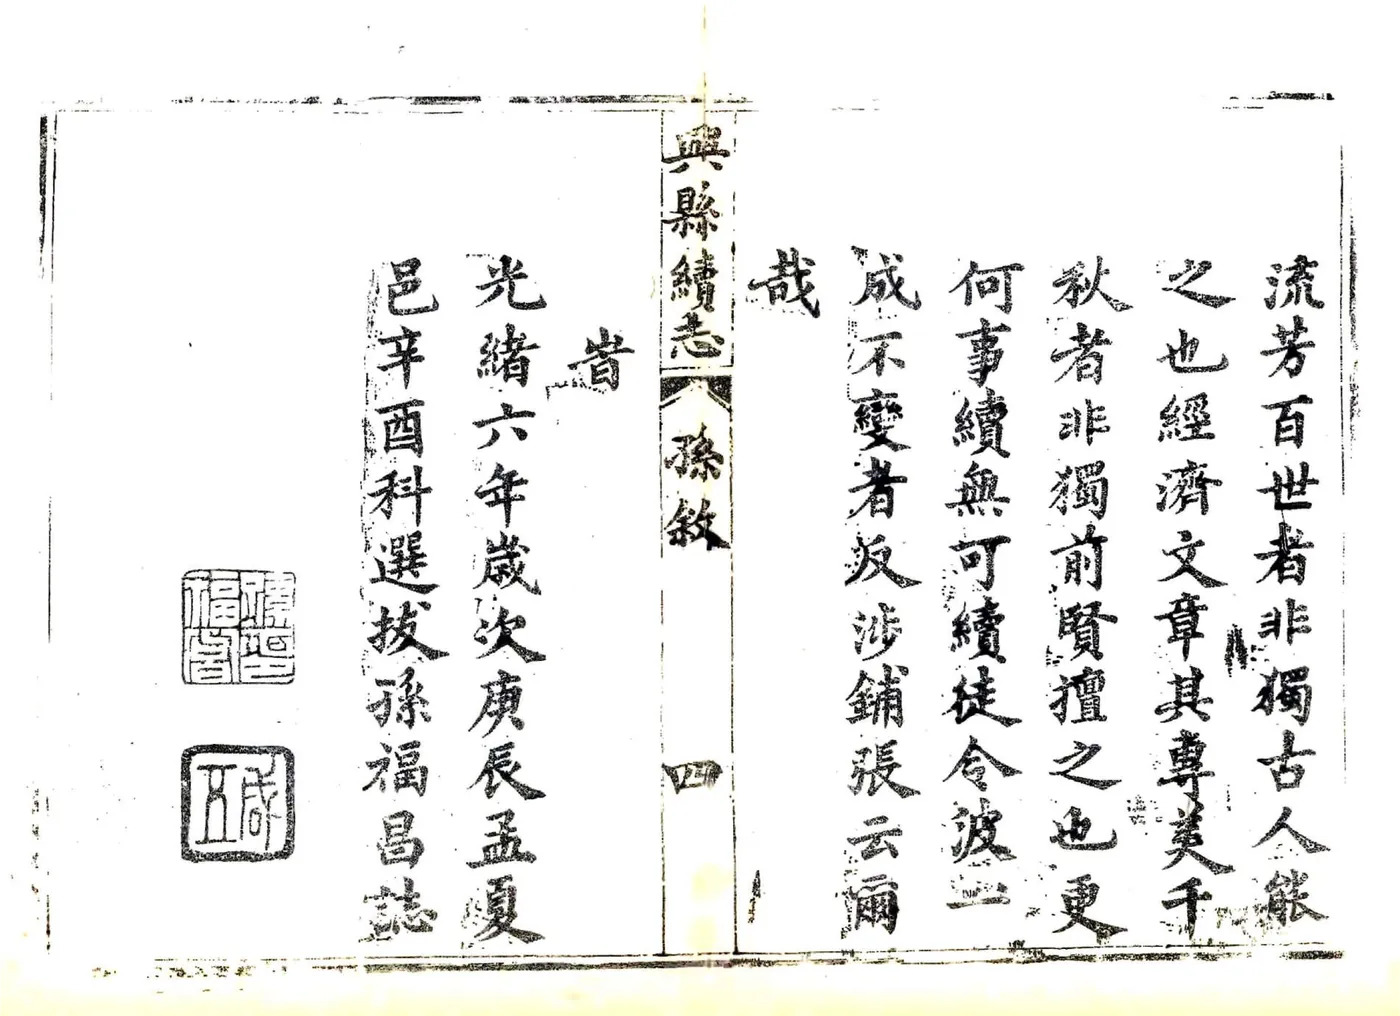 流芳百世者非獨古人能
之也經濟文章其專美千
秋者非獨前賢擅之也更
何事續無可續徒令波一
成不變者反涉鋪張云爾
哉
興縣續志
孫敘
四
旹
光緒六年歲次庚辰孟夏
邑辛酉科選拔孫福昌誌